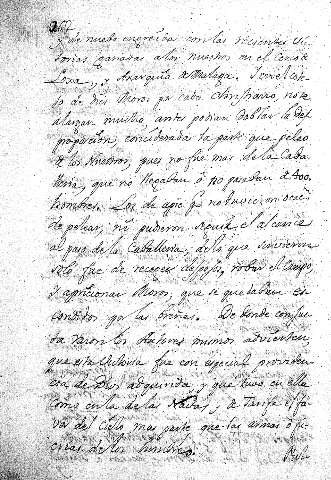 de nuevo engreida con las recientes Vic
torias ganadas a los nuestros en el cerco de
Loxa, y Axarquia de Malaga. I en el cote
jo de diez Moros por cada Christiano, no se
alargan mucho, antes podian doblar la des
proporcion, considerada la parte que peleo
de los Nuestros, pues no fue mas de la Caba
lleria, que no llegaban ó no pasaban de 300
hombres. Los de apie que no tuvieron ocasi
de pelear, ni pudieron seguir el alcance
al paso de la Caballeria, de lo que sirvieron
solo fue de recoger despojos, robar el Campo,
y aprisionar Moros, que se quedaban es
condidos por las breñas. De donde
los Autores mismos advierten,
que esta Victoria fue con especial providen
cia de Dios adquirida, y que tuvo en ella
como en la de las Navas, y de Tarifa el fa
vor del Cielo mas parte que las armas ó fu
erzas de los hombres.